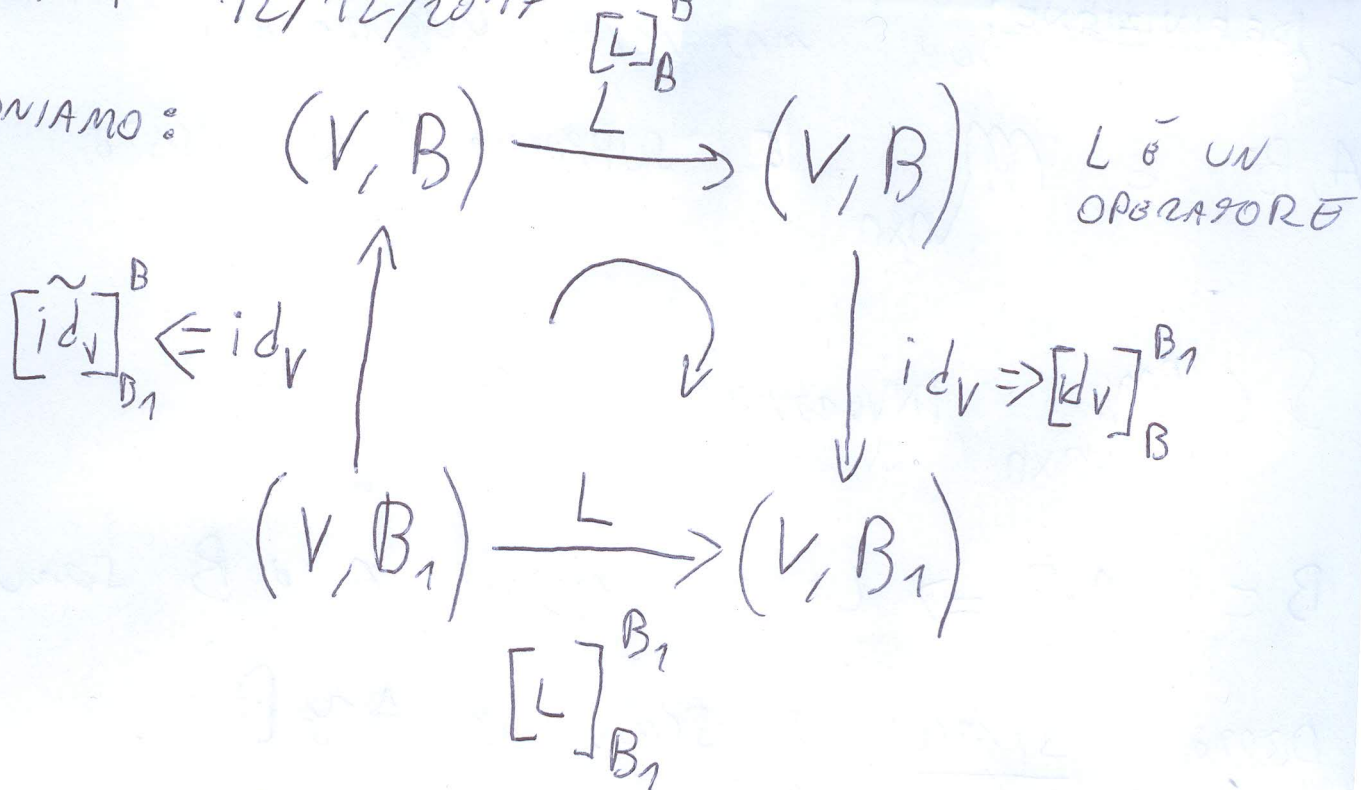 12/12/2017
[L]^B_B
NIAMO: (V, B) L (V, B) L È UN
OPERATORE
[ĩd_V]^B_{B_1} ⇐ id_V id_V ⇒ [id_V]^{B_1}_B
(V, B_1) L (V, B_1)
[L]^{B_1}_{B_1}